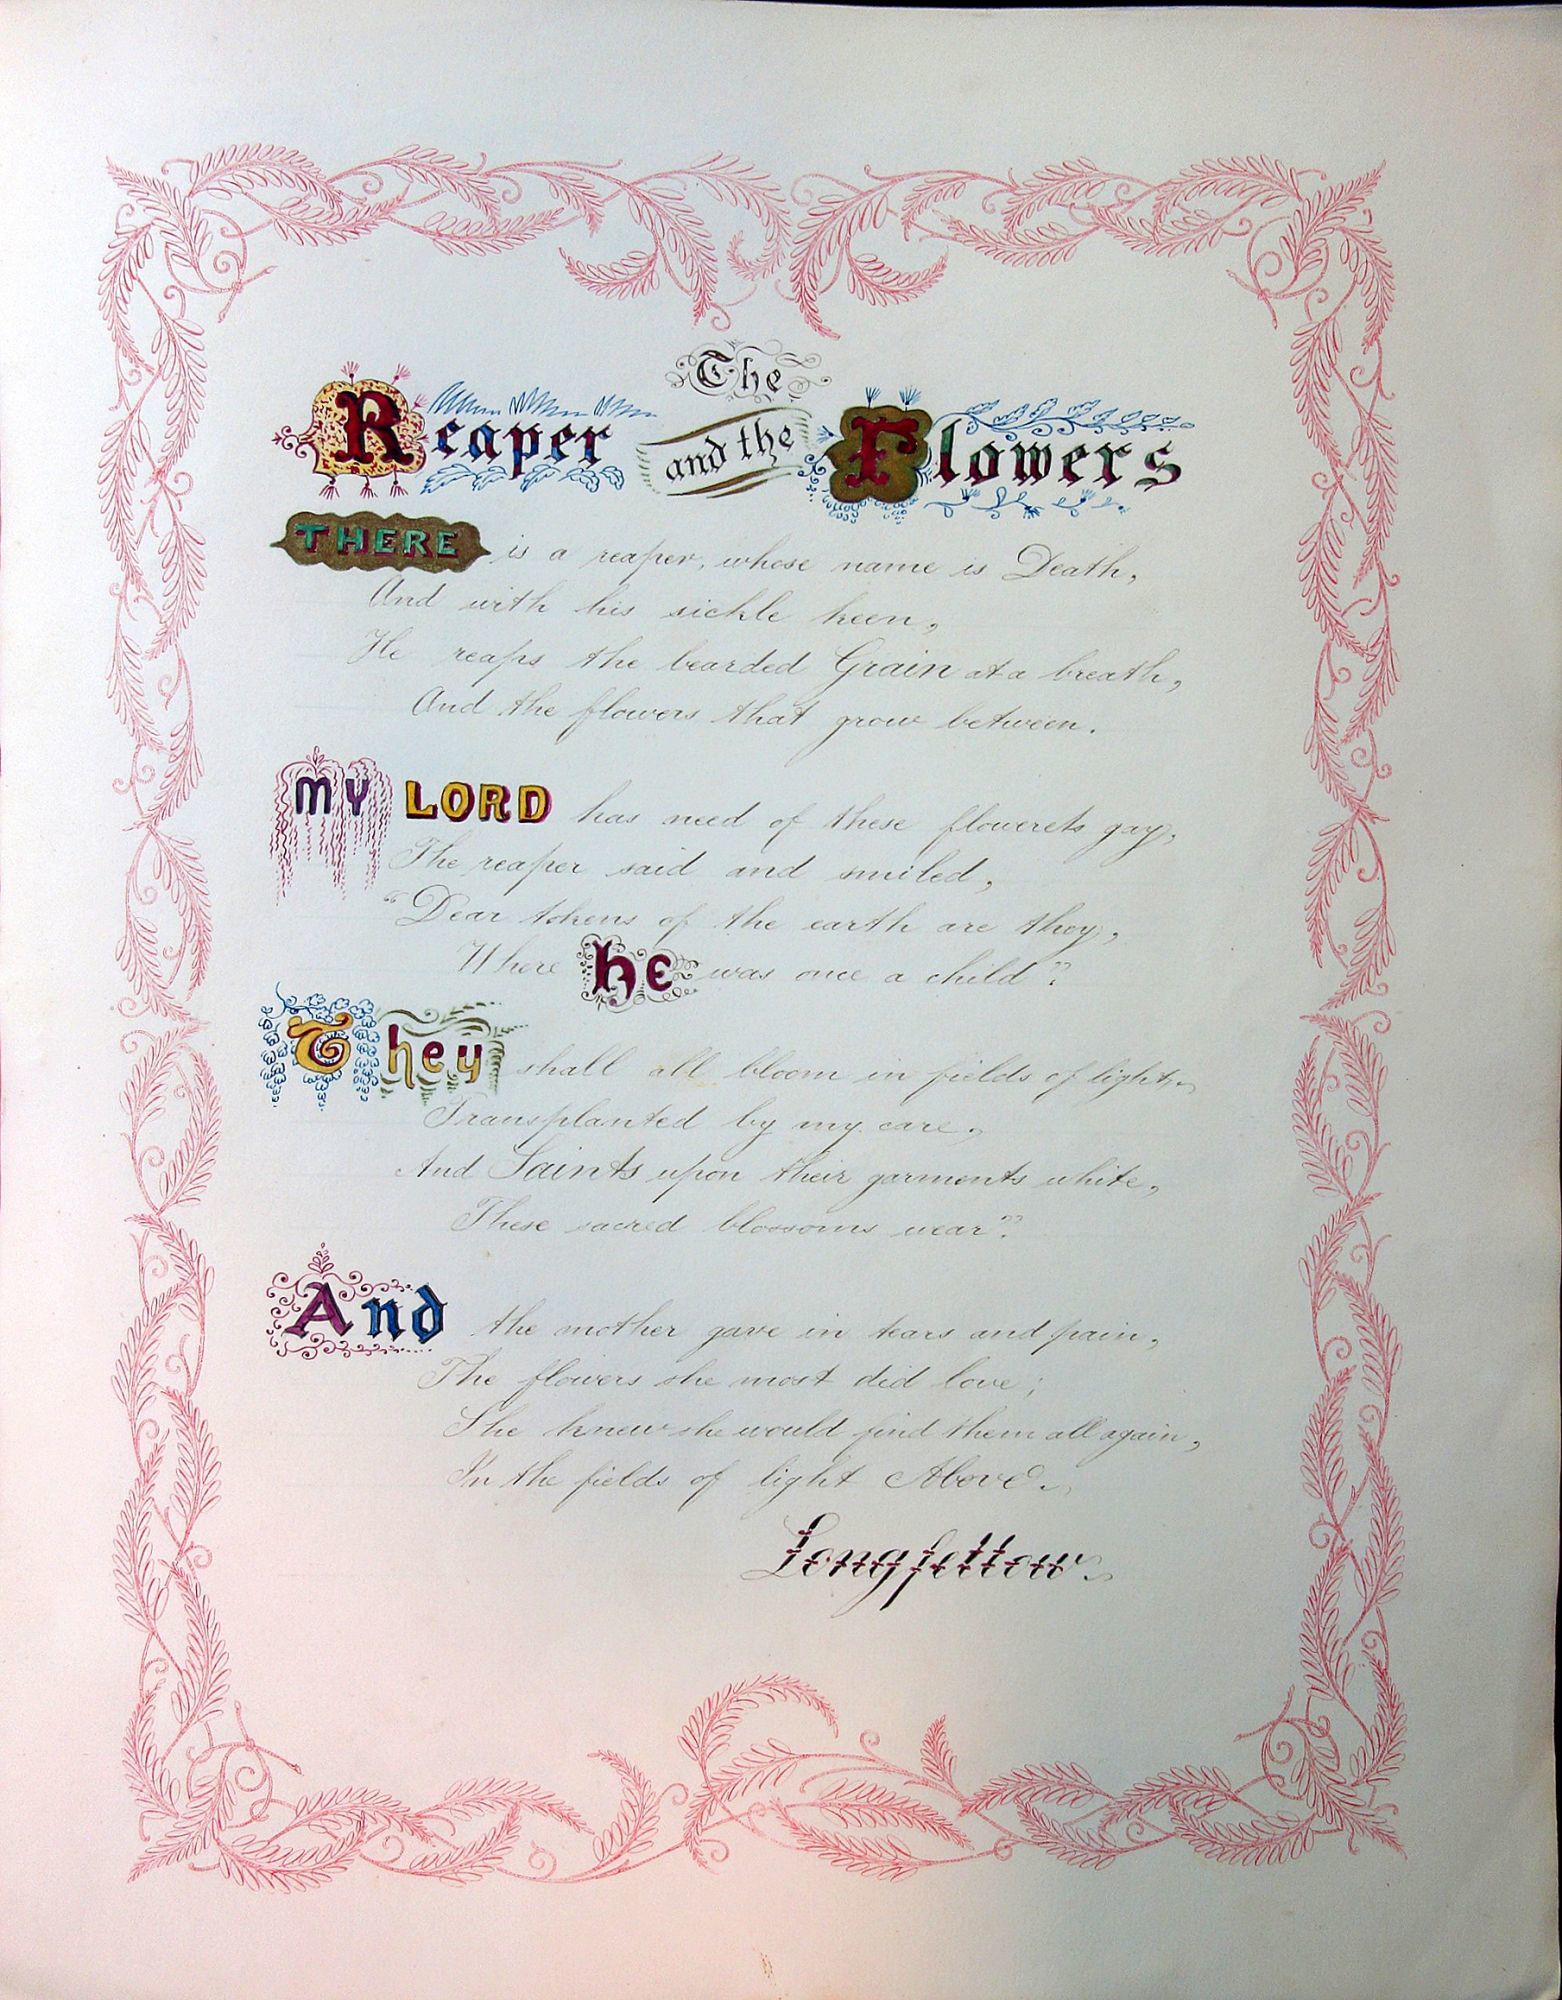 The
Reaper and the Flowers
THERE is a reaper, whose name is Death,
And with his sickle keen,
He reaps the bearded Grain at a breath,
And the flowers that grow between.
MY LORD has need of these flowerets gay,
The reaper said and smiled,
"Dear tokens of the earth are they,
Where He was once a child".
They shall all bloom in fields of light,
Transplanted by my care,
And Saints upon their garments white,
These sacred blossoms wear".
And the mother gave in tears and pain,
The flowers she most did love;
She knew she would find them all again,
In the fields of light Above.
Longfellow.